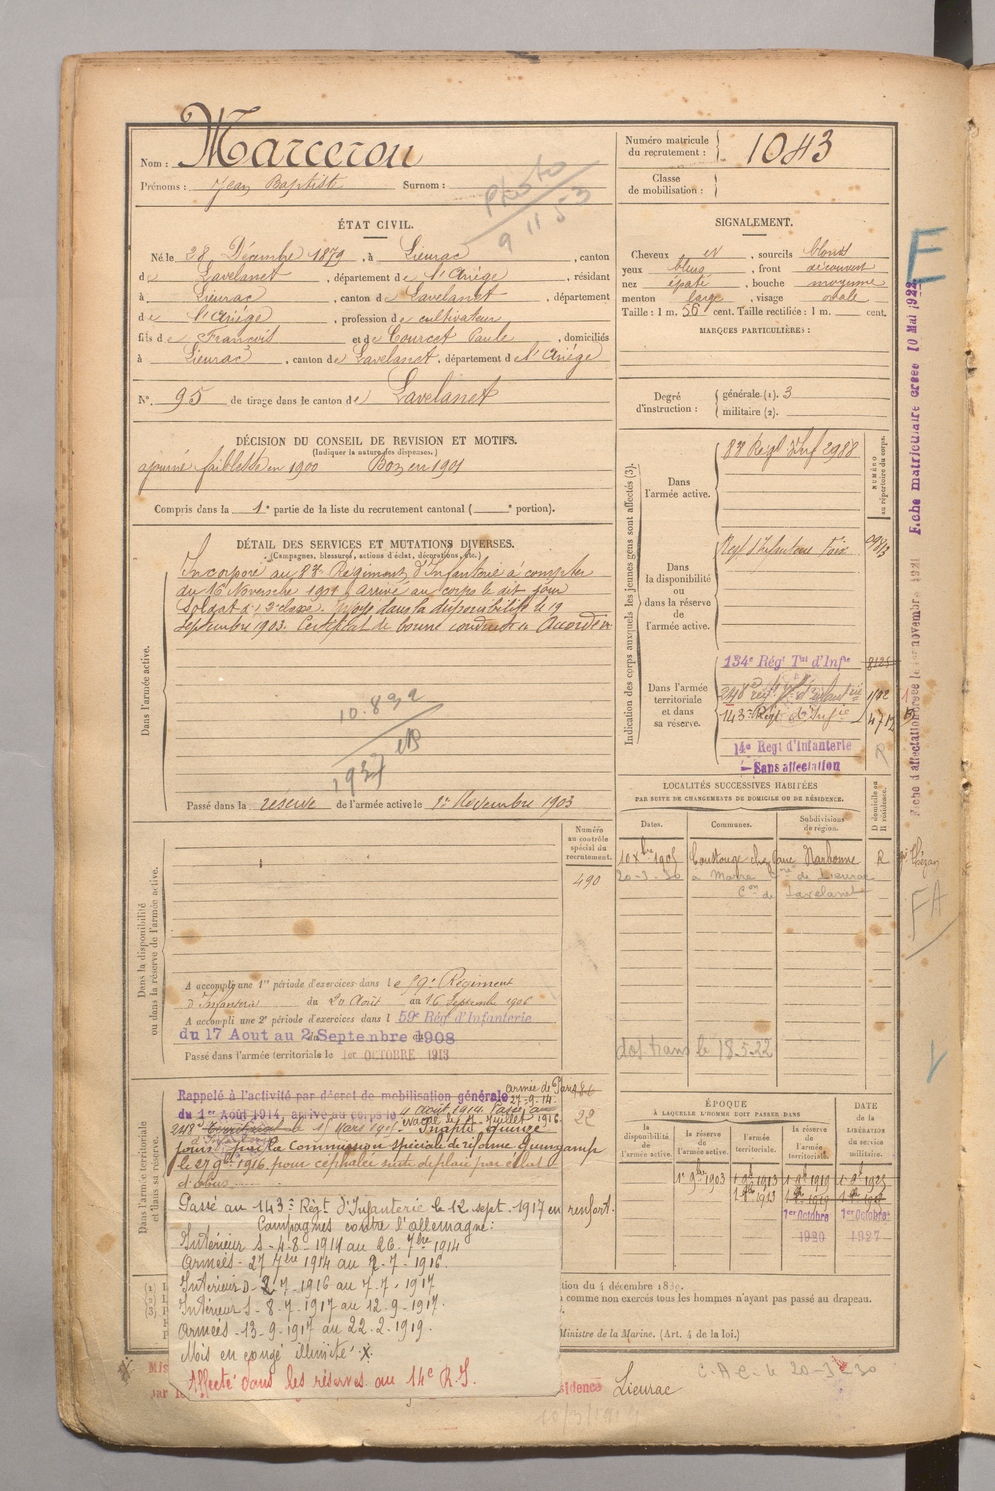 Nom : Marcerou
Prénoms : Jean Baptiste Surnom :
Photo
9 11 53
Numéro matricule du recrutement : 1043
Classe de mobilisation :
ÉTAT CIVIL.
Né le 28 Décembre 1879, à Lieurac, canton
de Lavelanet, département de l'Ariège, résidant
à Lieurac, canton de Lavelanet, département
de l'Ariège, profession de cultivateur
fils de François et de Courcet Paule, domiciliés
à Lieurac, canton de Lavelanet, département de l'Ariège
N° 95 de tirage dans le canton de Lavelanet
SIGNALEMENT.
Cheveux et, sourcils blonds
yeux bleus, front découvert
nez épaté, bouche moyenne
menton large, visage ovale
Taille : 1 m. 56 cent. Taille rectifiée : 1 m. cent.
MARQUES PARTICULIÈRES :
Degré d'instruction : générale (1). 3
militaire (2).
DÉCISION DU CONSEIL DE REVISION ET MOTIFS.
(Indiquer la nature des dispenses.)
ajourné faiblesse en 1900 Bon en 1901
Compris dans la 1e partie de la liste du recrutement cantonal ( e portion).
DÉTAIL DES SERVICES ET MUTATIONS DIVERSES.
(Campagnes, blessures, actions d'éclat, décorations, etc.)
Dans l'armée active.
Incorporé au 83e Régiment d'Infanterie à compter
du 16 Novembre 1901, arrivé au corps le dit jour
Soldat de 2e classe. Envoyé dans la disponibilité le 19
Septembre 1903. Certificat de bonne conduite Accordé
10.892
1937
Passé dans la reserve de l'armée active le 1er Novembre 1903
Indication des corps auxquels les jeunes gens sont affectés (3).
NUMÉRO au répertoire du corps.
Dans l'armée active.
83e Régt d'Inf 2988
Dans la disponibilité ou dans la réserve de l'armée active.
Regt d'Infanterie Foix
Dans l'armée territoriale et dans sa réserve.
134e Régt Tal d'Infie
248e
143e Régt d'Infie
14e Regt d'Infanterie
Sans affectation
R
LOCALITÉS SUCCESSIVES HABITÉES
PAR SUITE DE CHANGEMENTS DE DOMICILE OU DE RÉSIDENCE.
Dates. Communes. Subdivisions de région. D domicile ou R résidence.
10 Xbre 1905 Coustouge chez Narbonne R
20-3-30 à Mairie de Lieurac
Con de Lavelanet
dos trans le 18.5.22
Dans la disponibilité ou dans la réserve de l'armée active.
Numéro au contrôle spécial du recrutement.
490
A accompli une 1re période d'exercices dans le 59e Régiment
d'Infanterie du 20 Août au 16 Septembre 1906
A accompli une 2e période d'exercices dans l 59e Rég d'Infanterie
du 17 Aout au 2 Septembre 1908
Passé dans l'armée territoriale le 1er OCTOBRE 1913
Dans l'armée territoriale et dans sa réserve.
Rappelé à l'activité par décret de mobilisation générale
du 1er Août 1914, arrivé au corps le 4 Août 1914. Passé au
armée de
27-9-14
248e
évacué le Juillet 1916
jours par la Commission spéciale de réforme Guingamp
le 27 9bre 1916 pour céphalée suite de plaie par éclat
d'obus
Passé au 143e Régt d'Infanterie le 12 sept. 1917 en renfort.
Campagnes contre l'allemagne :
Intérieur S - 4-8-1914 au 26 7bre 1914
Armées - 27 7bre 1914 au 2-7-1916
Intérieur D - 2-7-1916 au 7-7-1917
Intérieur S - 8-7-1917 au 12-9-1917
Armées - 13-9-1917 au 22-2-1919.
Mis en congé illimité
Affecté dans les réserves au 14e R.I.
ÉPOQUE
À LAQUELLE L'HOMME DOIT PASSER DANS
DATE DE LA LIBÉRATION du service militaire.
la disponibilité de l'armée active. la réserve de l'armée active. l'armée territoriale. la réserve de l'armée territoriale.
1er 9bre 1903 1er 8bre 1913 1er 8bre 1919 1er 8bre 1925
1er Octobre 1920 1er Octobre 1927
tion du 4 décembre 1889.
a comme non exercés tous les hommes n'ayant pas passé au drapeau.
Ministre de la Marine. (Art. 4 de la loi.)
Mis
sidence Lieurac
20-3-30
Fiche matriculaire créée 10 Mai 1922
E
FA